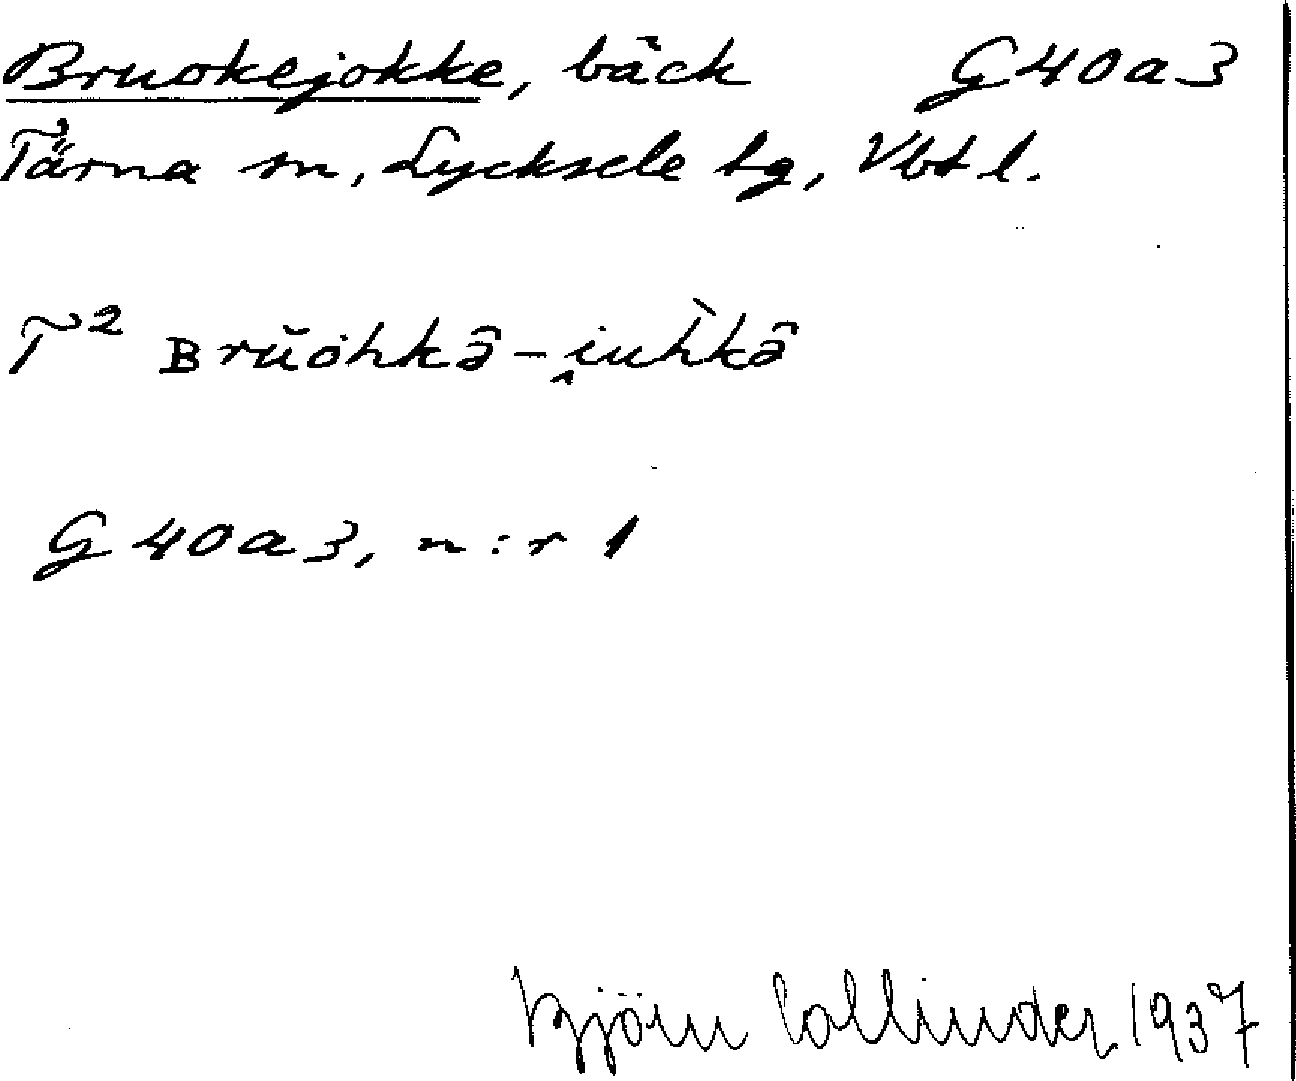 Bruokejokke, bäck G40a3
Tärna sn, Lycksele tg, Vbt l.
T² ʙrŭȯhkâ-i̭uh̀kâ
G 40a3, n:r 1
Björn Collinder 1937